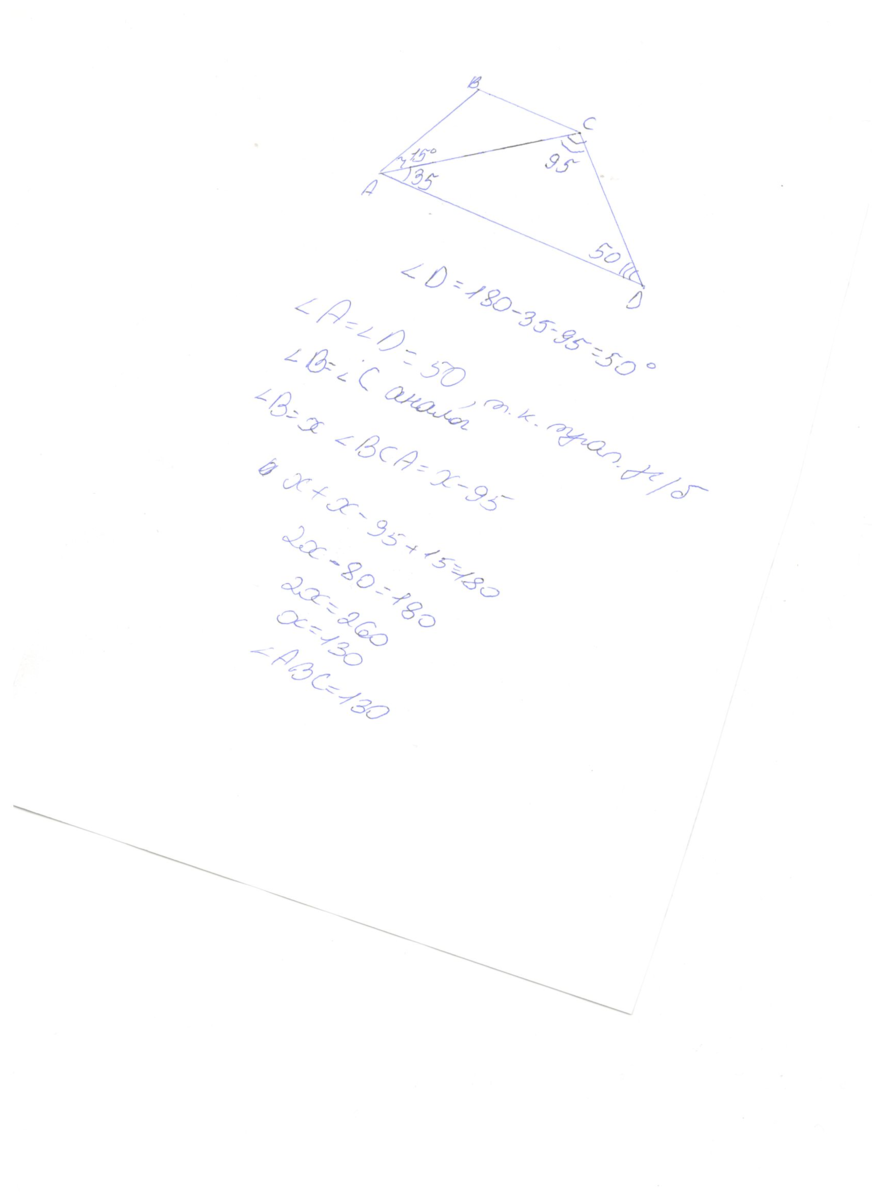 B
C
15°
95
A
35
50
D
∠D=180-35-95=50°
∠A=∠D=50, т.к. трап. р/б
∠B=∠C аналог
∠B=x ∠BCA=x-95
x+x-95+15=180
2x-80=180
2x=260
x=130
∠ABC=130